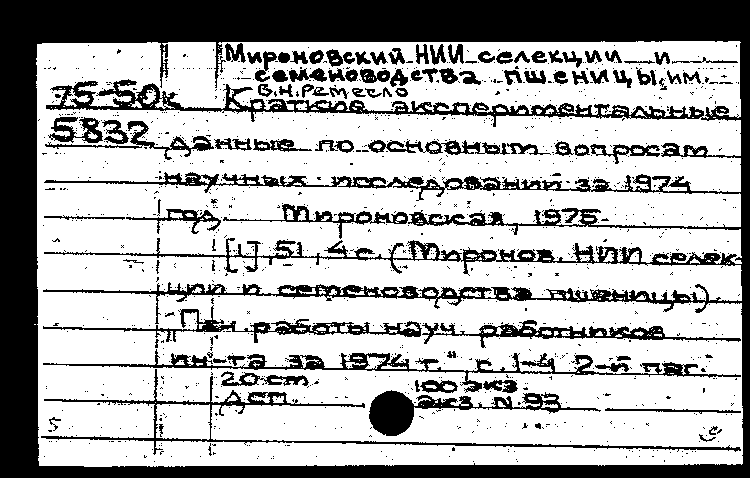 Мироновский НИИ селекции и
семеноводства пшеницы им.
В.Н.Ремесло
75-50к Краткие экспериментальные
5832 данные по основным вопросам
научных исследований за 1974
год. Мироновская, 1975.
[1], 51, 4 с. (Миронов. НИИ селек-
ции и семеноводства пшеницы).
"План работы науч. работников
ин-та за 1974 г.", с. 1-4 2-й паг.
20 см. 100 экз.
ДСП. Экз. N 93
5